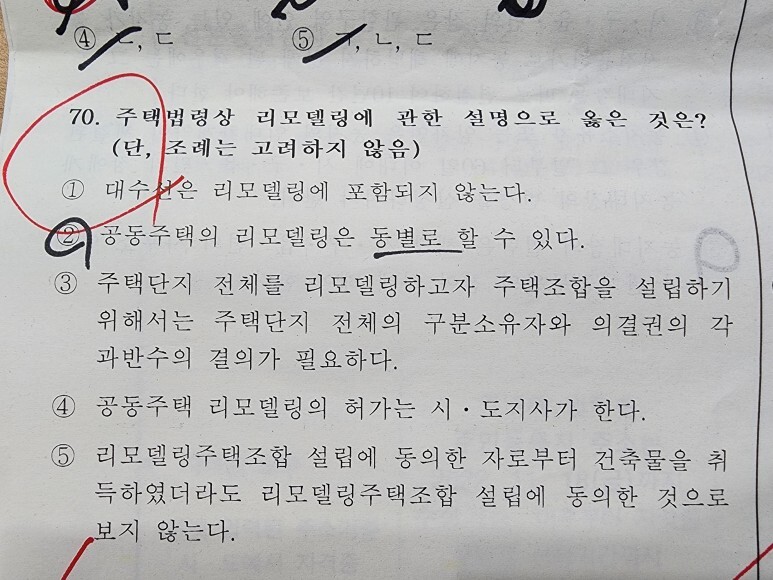 ④ ㄷ, ㄷ ⑤ ㄱ, ㄴ, ㄷ
70. 주택법령상 리모델링에 관한 설명으로 옳은 것은?
(단, 조례는 고려하지 않음)
① 대수선은 리모델링에 포함되지 않는다.
② 공동주택의 리모델링은 동별로 할 수 있다.
③ 주택단지 전체를 리모델링하고자 주택조합을 설립하기
위해서는 주택단지 전체의 구분소유자와 의결권의 각
과반수의 결의가 필요하다.
④ 공동주택 리모델링의 허가는 시・도지사가 한다.
⑤ 리모델링주택조합 설립에 동의한 자로부터 건축물을 취
득하였더라도 리모델링주택조합 설립에 동의한 것으로
보지 않는다.